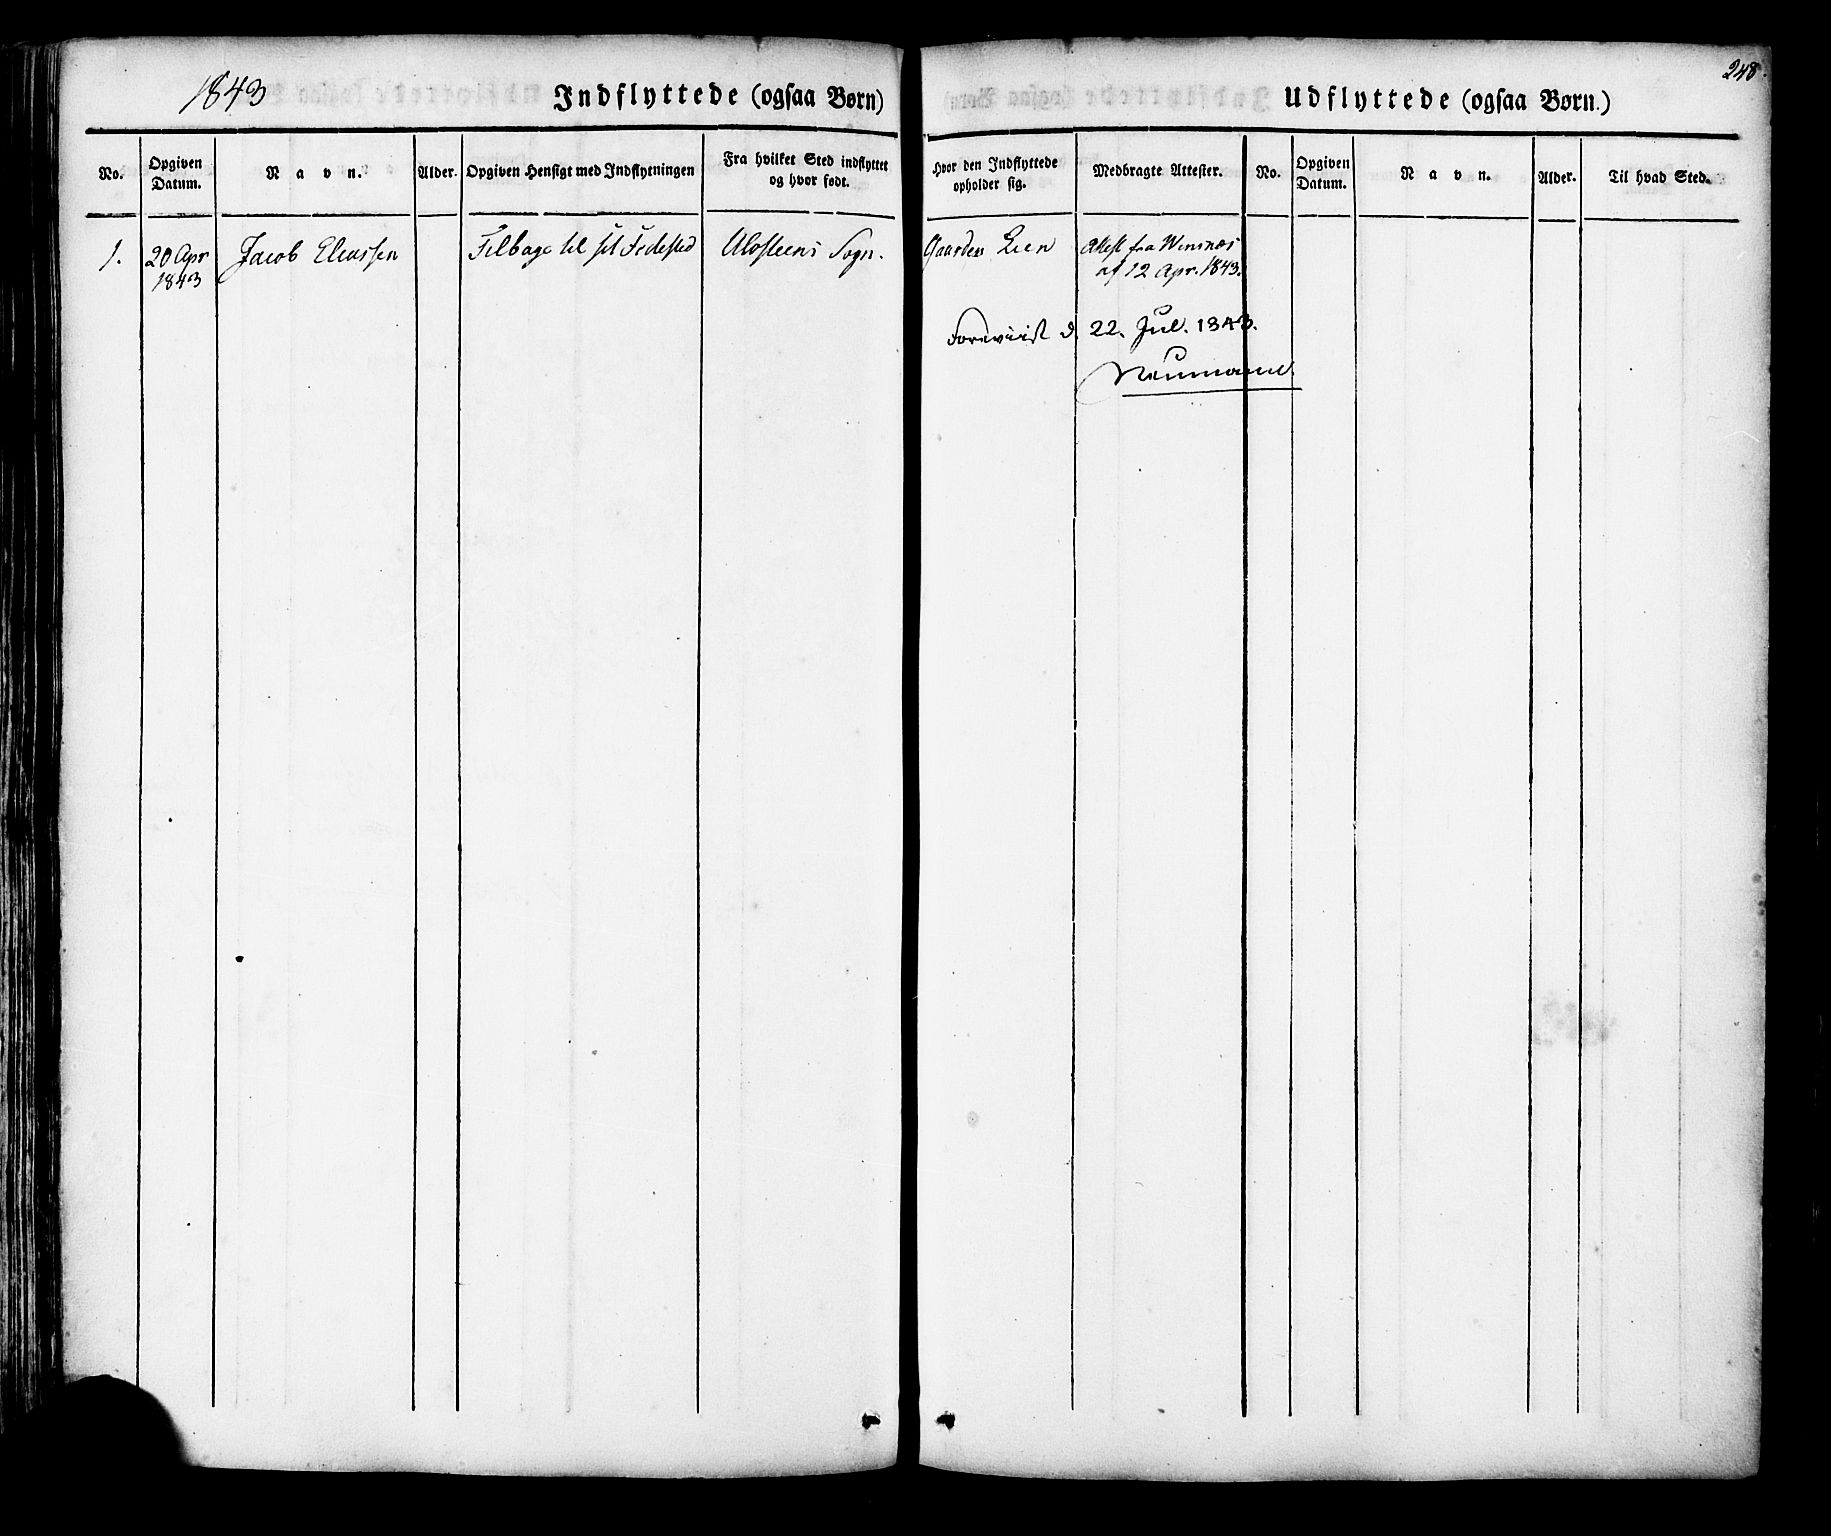 1843
Indflyttede (ogsaa Børn)
No.
Opgiven Datum.
Navn.
Alder.
Opgiven Hensigt med Indflytningen
Fra hvilket Sted indflyttet og hvor født.
1.
20 Apr 1843
Jacob Eliassen
Tilbage til sit Fødested
Ulvsteens Sogn.
248.
Udflyttede (ogsaa Børn.)
Hvor den Indflyttede opholder sig.
Medbragte Attester.
No.
Opgiven Datum.
Navn.
Alder.
Til hvad Sted.
Gaarden Lien
Attest fra Winsnæs
af 12 Apr. 1843.
Foreviist d 22. Jul. 1843.
Neumann.